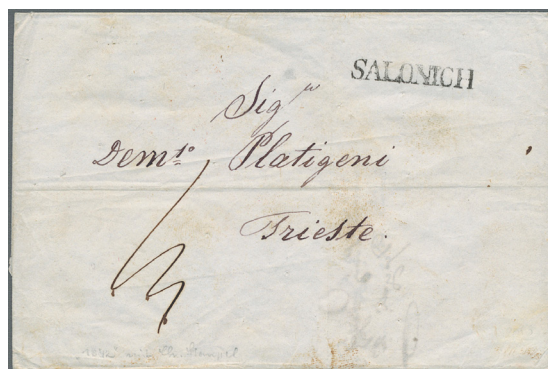 SALONICH
Sigʳ
Demᵗº Platigeni
Trieste.